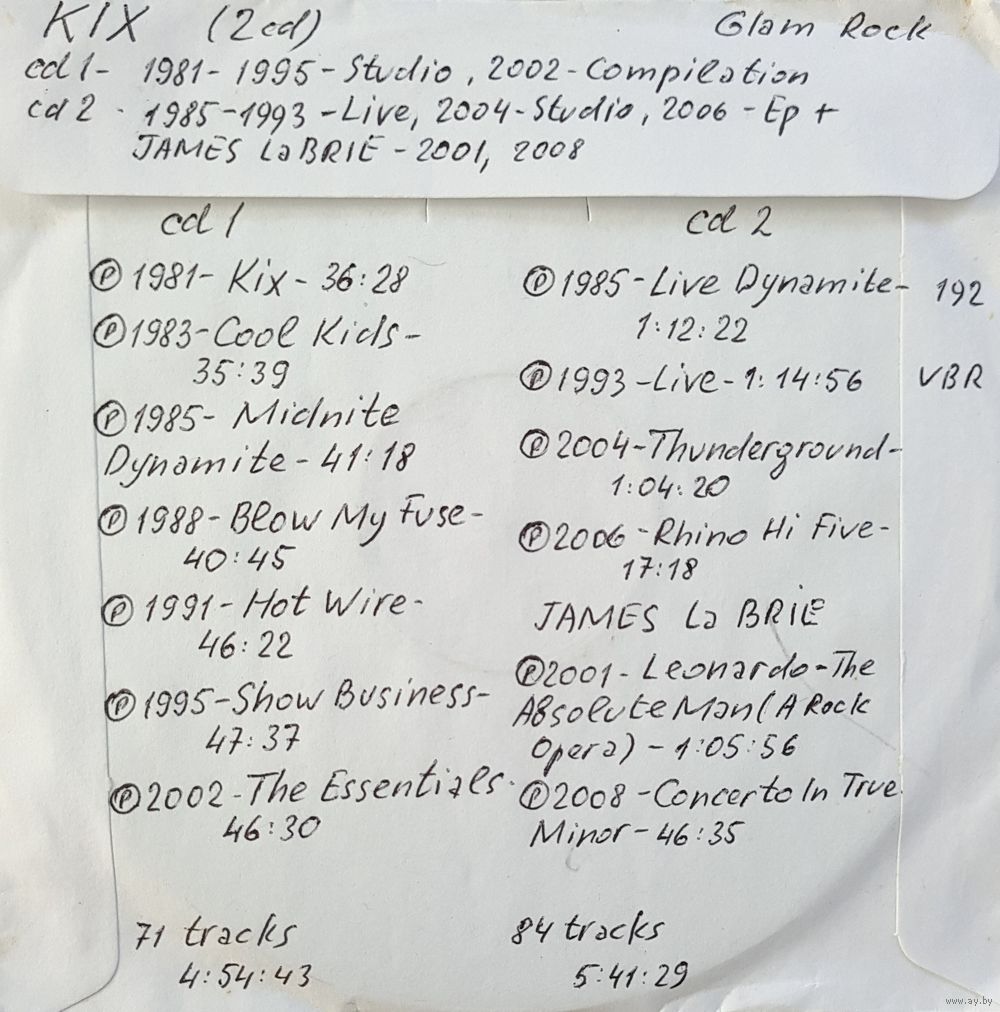 KIX (2cd) Glam Rock
cd 1- 1981-1995-Studio, 2002-Compilation
cd 2 - 1985-1993-Live, 2004-Studio, 2006-Ep +
JAMES LaBRIE - 2001, 2008
cd 1
Ⓟ 1981- Kix - 36:28
Ⓟ 1983-Cool Kids-
35:39
Ⓟ 1985- Midnite
Dynamite - 41:18
Ⓟ 1988-Blow My Fuse-
40:45
Ⓟ 1991-Hot Wire-
46:22
Ⓟ 1995-Show Business-
47:37
Ⓟ 2002-The Essentials-
46:30
71 tracks
4:54:43
cd 2
Ⓟ 1985-Live Dynamite- 192
1:12:22
Ⓟ 1993-Live-1:14:56 VBR
Ⓟ 2004-Thunderground-
1:04:20
Ⓟ 2006-Rhino Hi Five-
17:18
JAMES La BRIE
Ⓟ 2001- Leonardo-The
Absolute Man (A Rock
Opera) - 1:05:56
Ⓟ 2008-Concerto In True
Minor-46:35
84 tracks
5:41:29
www.ay.by